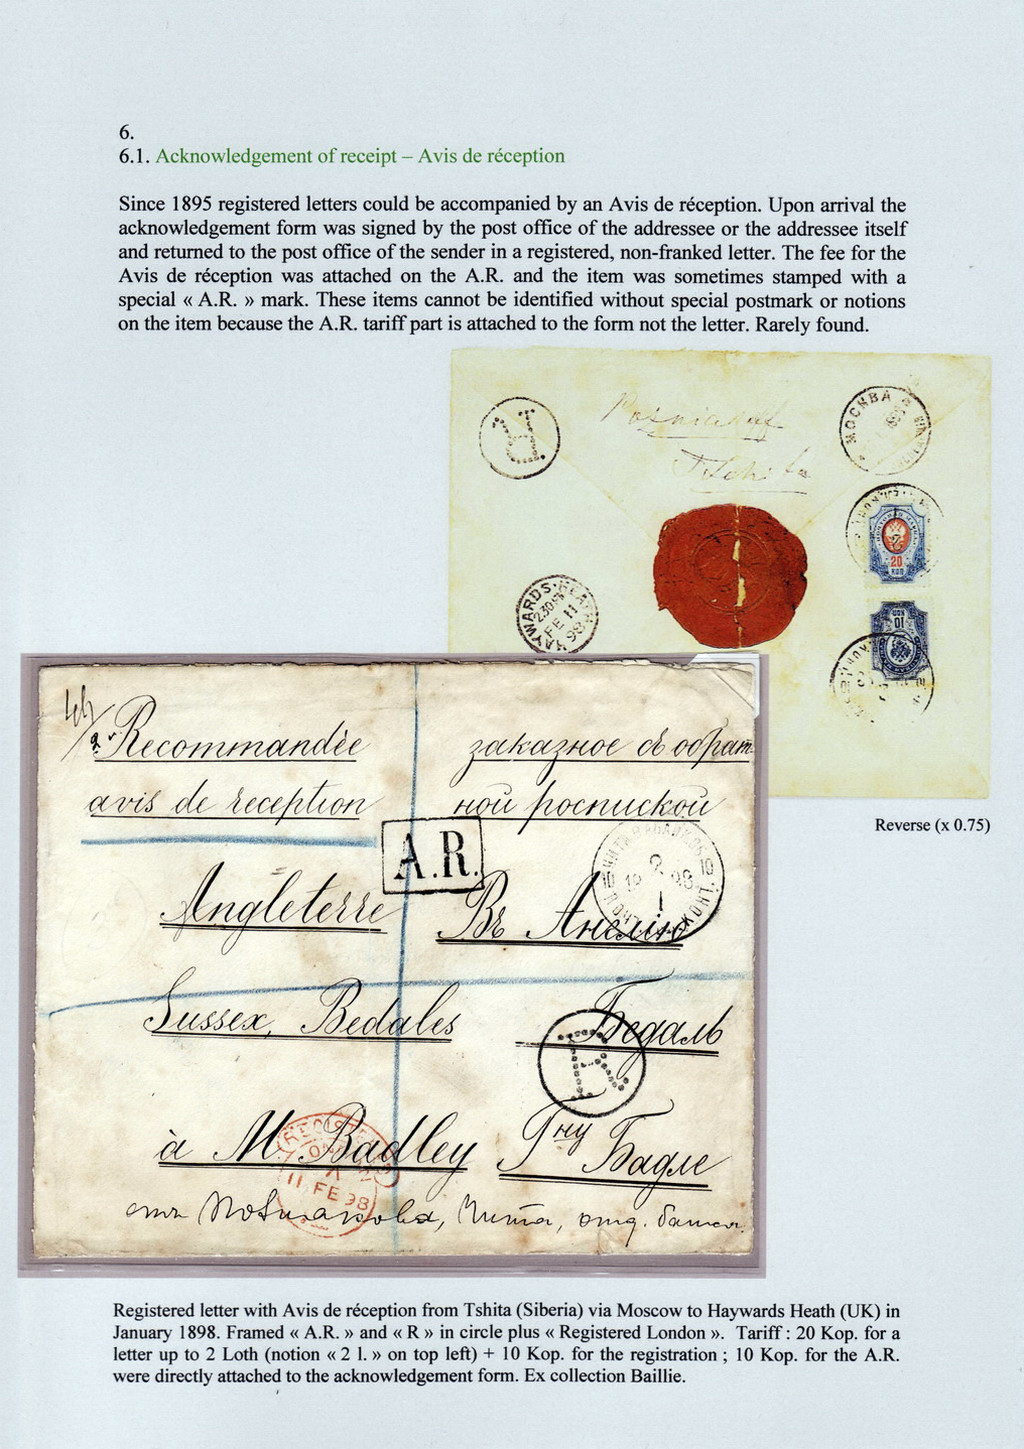 6.
6.1. Acknowledgement of receipt – Avis de réception
Since 1895 registered letters could be accompanied by an Avis de réception. Upon arrival the
acknowledgement form was signed by the post office of the addressee or the addressee itself
and returned to the post office of the sender in a registered, non-franked letter. The fee for the
Avis de réception was attached on the A.R. and the item was sometimes stamped with a
special « A.R. » mark. These items cannot be identified without special postmark or notions
on the item because the A.R. tariff part is attached to the form not the letter. Rarely found.
R
МОСКВА
Tschita
20
КОП
10
КОП
HAYWARDS HEATH
230PM
FE 11
98
Reverse (x 0.75)
Recommandée
заказное съ обрат-
avis de reception
ной роспиской
A.R.
Angleterre
Въ Англію
Sussex, Bedales
Бедаль
R
à M. Badley
Гну Бадле
REGISTERED
LONDON
11 FE 98
Чита, отд.
Registered letter with Avis de réception from Tshita (Siberia) via Moscow to Haywards Heath (UK) in
January 1898. Framed « A.R. » and « R » in circle plus « Registered London ». Tariff : 20 Kop. for a
letter up to 2 Loth (notion « 2 l. » on top left) + 10 Kop. for the registration ; 10 Kop. for the A.R.
were directly attached to the acknowledgement form. Ex collection Baillie.